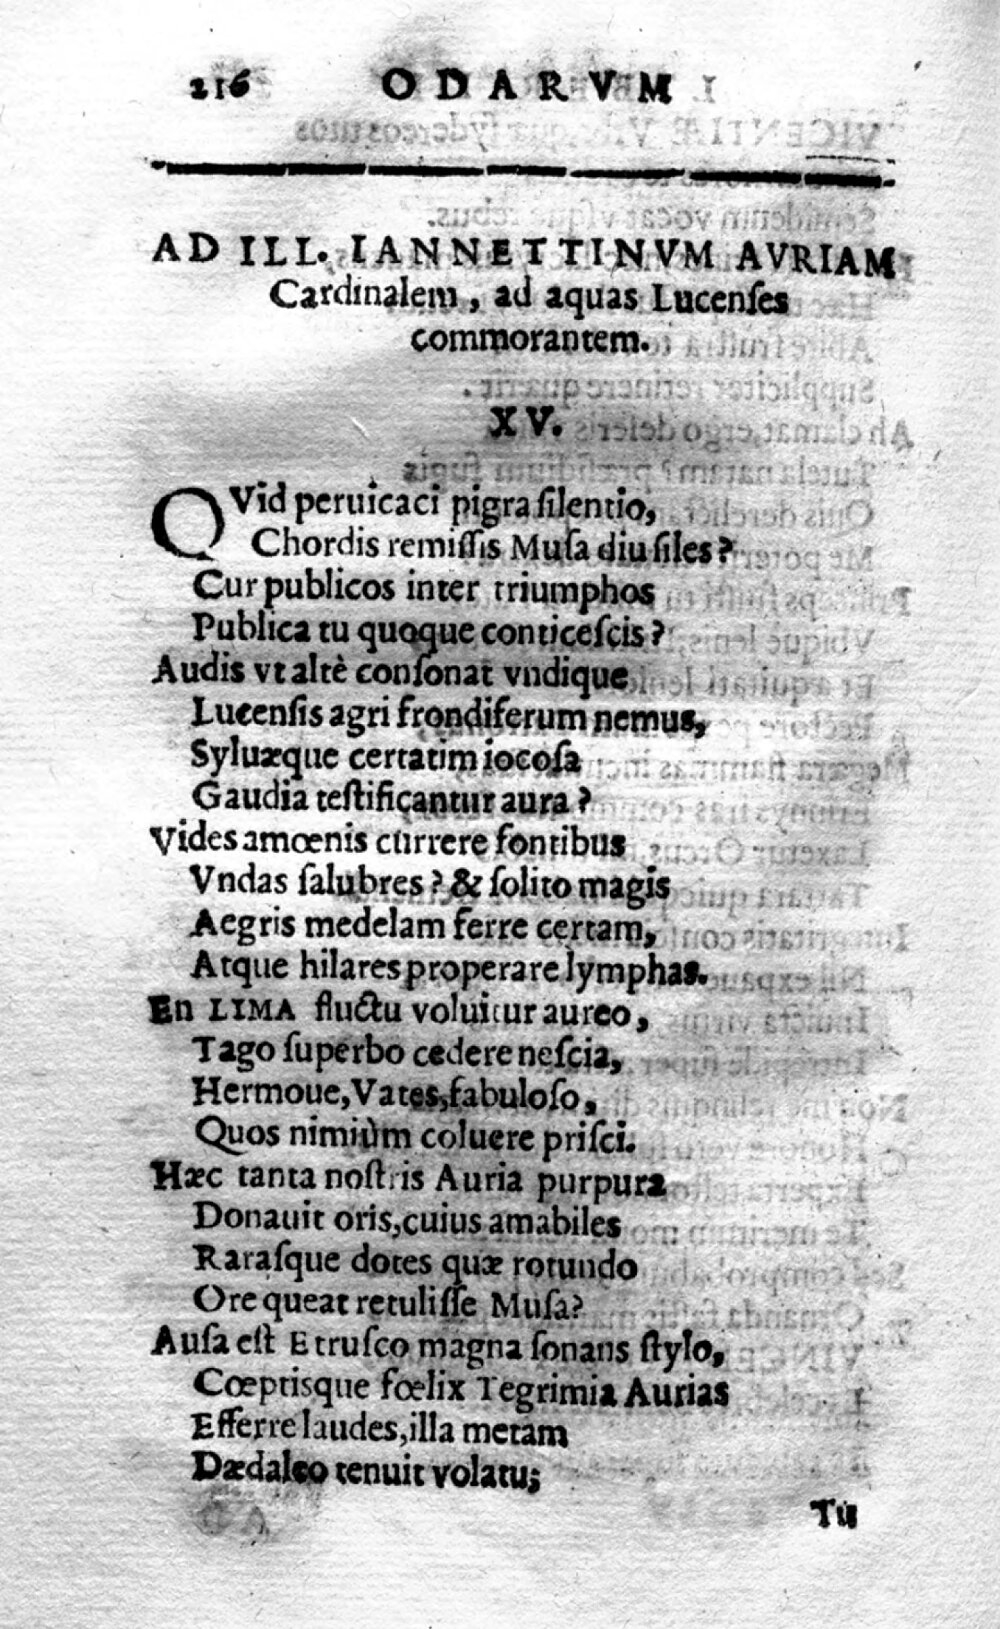 216 ODARVM
AD ILL. IANNETTINVM AVRIAM
Cardinalem, ad aquas Lucenſes
commorantem.
XV.
QVid peruicaci pigra ſilentio,
Chordis remiſſis Muſa diu ſiles?
Cur publicos inter triumphos
Publica tu quoque conticeſcis?
Audis vt altè conſonat vndique
Lucenſis agri frondiferum nemus,
Syluæque certatim iocoſa
Gaudia teſtificantur aura?
Vides amœnis currere fontibus
Vndas ſalubres? & ſolito magis
Aegris medelam ferre certam,
Atque hilares properare lymphas.
En LIMA fluctu voluitur aureo,
Tago ſuperbo cedere neſcia,
Hermoue, Vates, fabuloſo,
Quos nimiùm coluere priſci.
Hæc tanta noſtris Auria purpura
Donauit oris, cuius amabiles
Raraſque dotes quæ rotundo
Ore queat retuliſſe Muſa?
Auſa eſt Etruſco magna ſonans ſtylo,
Cœptisque fœlix Tegrimia Aurias
Efferre laudes, illa metam
Dædaleo tenuit volatu;
Tu